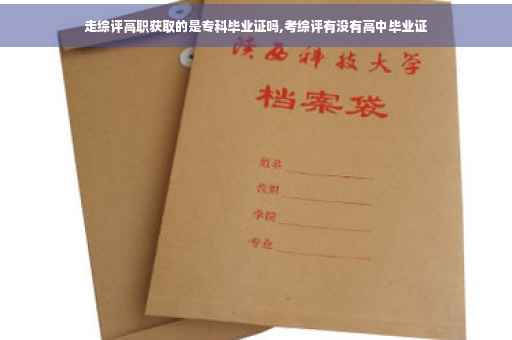 走综评高职获取的是专科毕业证吗,考综评有没有高中毕业证
陕西科技大学
档案袋
姓名
学院
专业